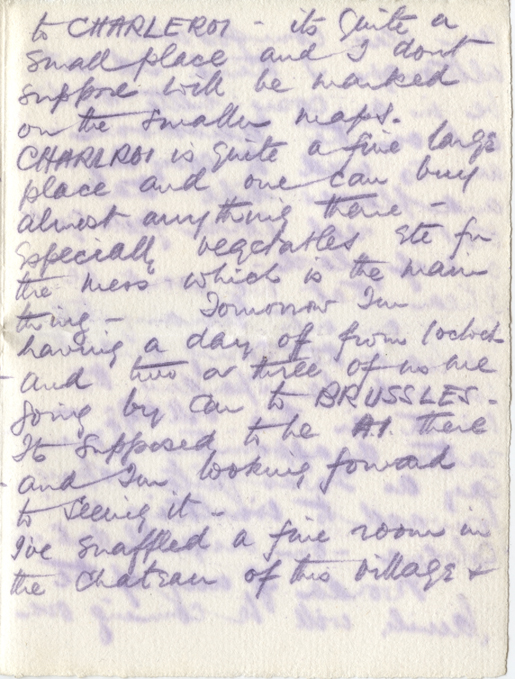 to CHARLEROI - its quite a
small place and I dont
suppose will be marked
on the smaller maps.
CHARLROI is quite a fine large
place and one can buy
almost anything there -
especially vegetables etc for
the mess which is the main
thing - Tomorrow I'm
having a day of from 1oclock
and two or three of us are
going by car to BRUSSLES -
Its supposed to be A.1. there
and I'm looking forward
to seeing it -
I've snaffled a fine room in
the Chateau of this village &